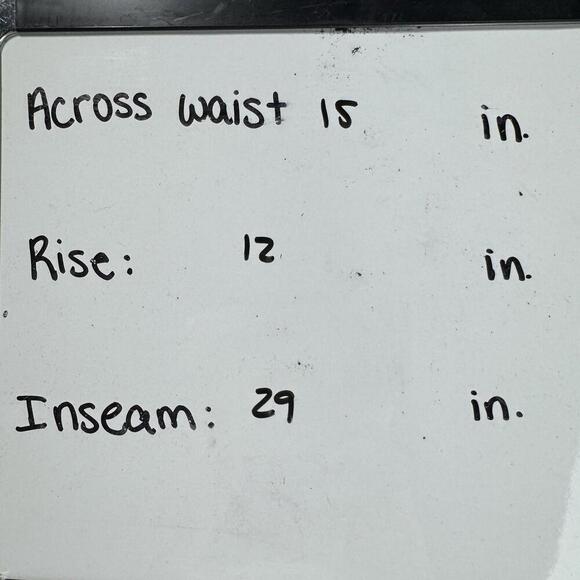 Across waist 15 in.
Rise: 12 in.
Inseam: 29 in.